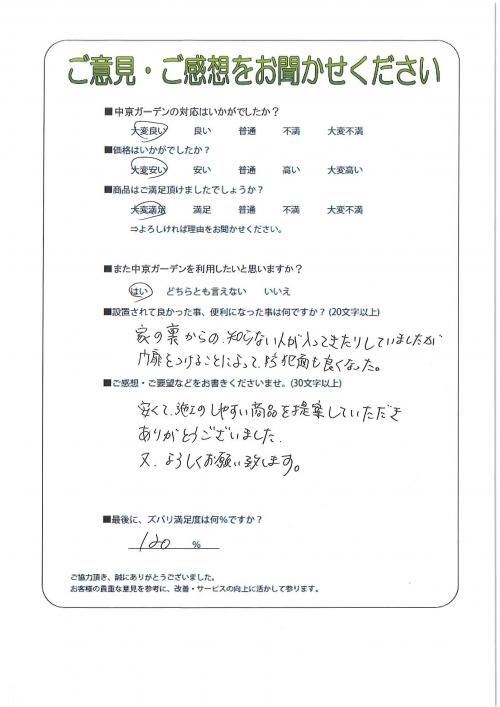 ご意見・ご感想をお聞かせください
■中京ガーデンの対応はいかがでしたか？
大変良い 良い 普通 不満 大変不満
■価格はいかがでしたか？
大変安い 安い 普通 高い 大変高い
■商品はご満足頂けましたでしょうか？
大変満足 満足 普通 不満 大変不満
⇒よろしければ理由をお聞かせください。
■また中京ガーデンを利用したいと思いますか？
はい どちらとも言えない いいえ
■設置されて良かった事、便利になった事は何ですか？(20文字以上)
家の裏からの、知らない人が入ってきたりしていましたが
門扉をつけることによって、防犯面も良くなった。
■ご感想・ご要望などをお書きくださいませ。(30文字以上)
安くて、施工のしやすい商品を提案していただき
ありがとうございました.
又、よろしくお願い致します。
■最後に、ズバリ満足度は何％ですか？
120 %
ご協力頂き、誠にありがとうございました。
お客様の貴重な意見を参考に、改善・サービスの向上に活かして参ります。